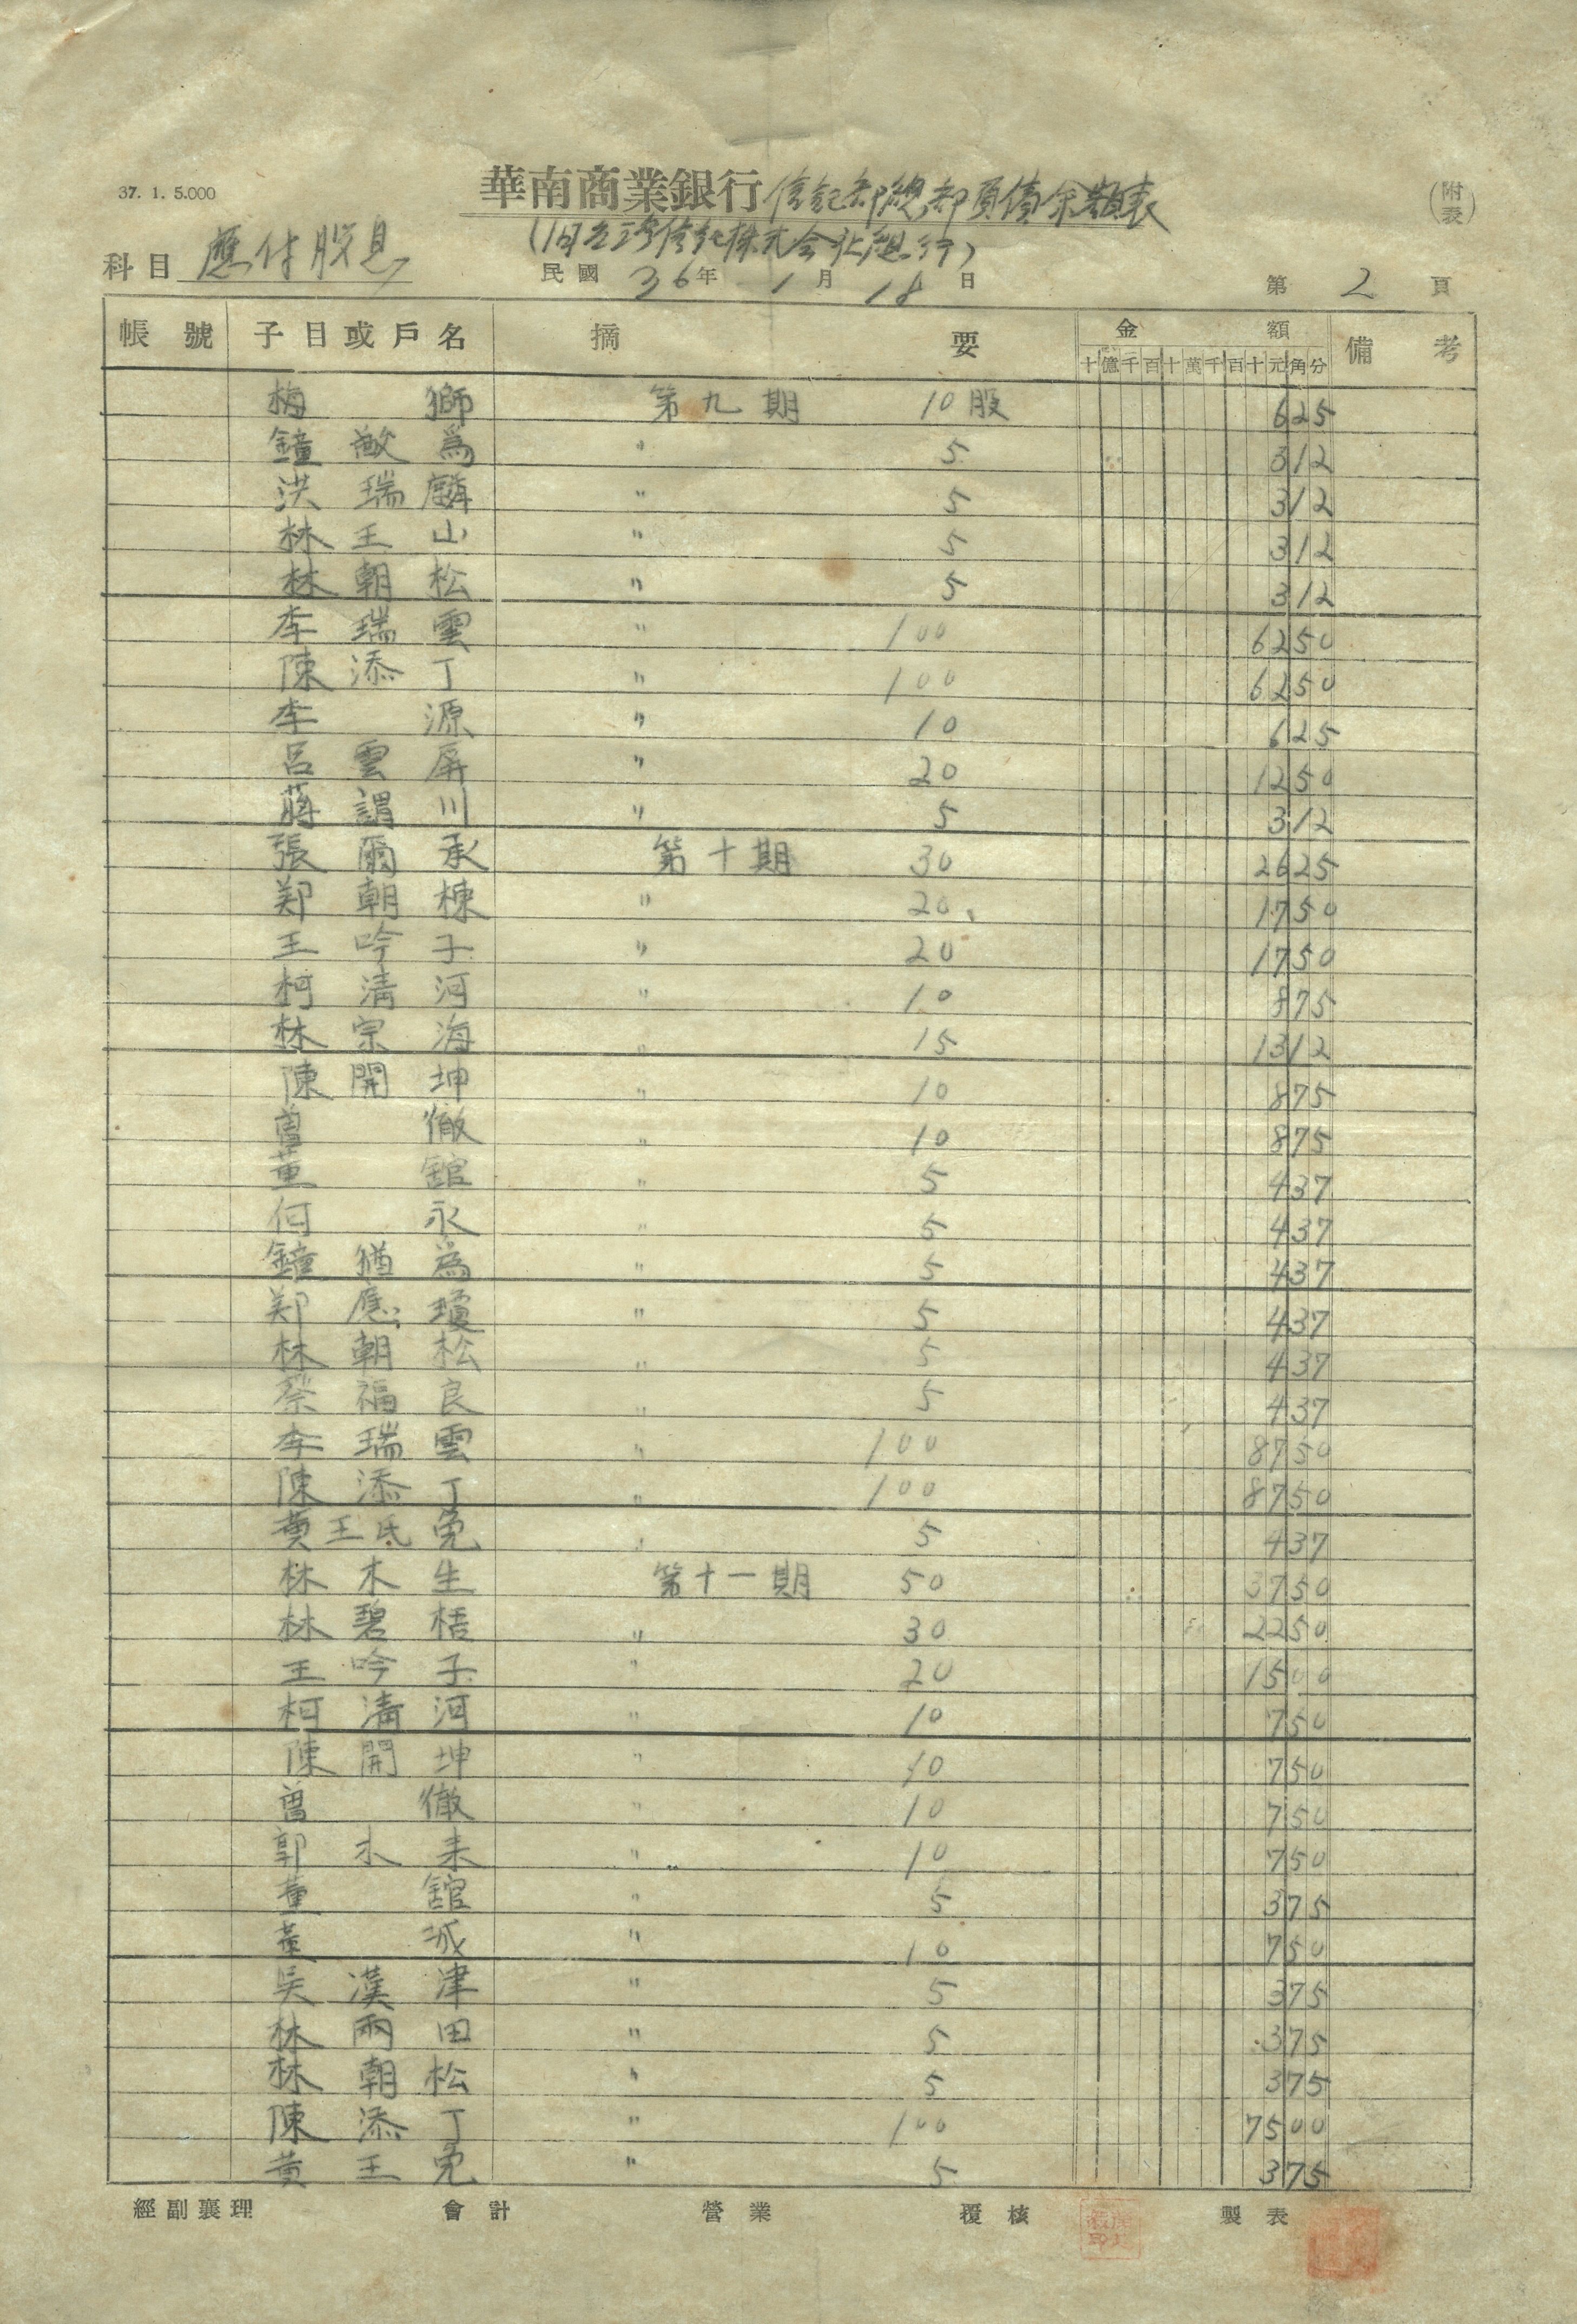 37. 1. 5.000
華南商業銀行信託部總部負債余額表
(附表)
(旧台湾信託株式会社)
科目 應付股息
民國 36年 1月 18日
第 2 頁
帳號 子目或戶名 摘要 金額 備考
十億千百十萬千百十元角分
梅獅 第九期 10股 625
鐘猷為 〃 5 312
洪瑞麟 〃 5 312
林王山 〃 5 312
林朝松 〃 5 312
李瑞雲 〃 100 6250
陳添丁 〃 100 6250
李源 〃 10 625
呂雲屏 〃 20 1250
蔣謂川 〃 5 312
張爾承 第十期 30 2625
郑朝棟 〃 20 1750
王吟子 〃 20 1750
柯清河 〃 10 875
林宗海 〃 15 1312
陳開坤 〃 10 875
曽徹 〃 10 875
董舘 〃 5 437
何永 〃 5 437
鐘猶為 〃 5 437
郑應瓊 〃 5 437
林朝松 〃 5 437
蔡福良 〃 5 437
李瑞雲 〃 100 8750
陳添丁 〃 100 8750
黄王氏免 〃 5 437
林木生 第十一期 50 3750
林碧梧 〃 30 2250
王吟子 〃 20 1500
柯清河 〃 10 750
陳開坤 〃 10 750
曽徹 〃 10 750
郭木来 〃 10 750
董舘 〃 5 375
黄城 〃 10 750
吳漢津 〃 5 375
林雨田 〃 5 375
林朝松 〃 5 375
陳添丁 〃 100 7500
黄王免 〃 5 375
經副襄理 會計 營業 覆核 製表